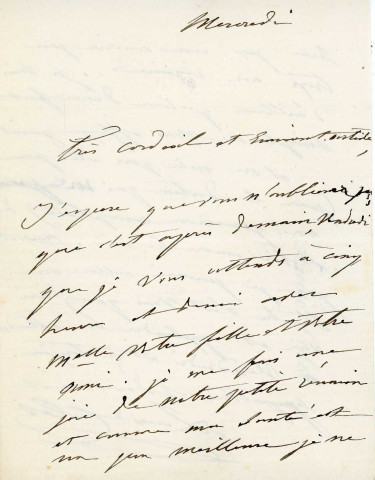 Mercredi
Très cordial et Eminent artiste,
J'espère que vous n'oublierez pas
que c'est après demain, Vendredi
que je vous attends à cinq
heures et demie avec
Melle votre fille et votre
amie. je me fais une
joie de notre petite réunion
et comme ma santé est
un peu meilleure je ne